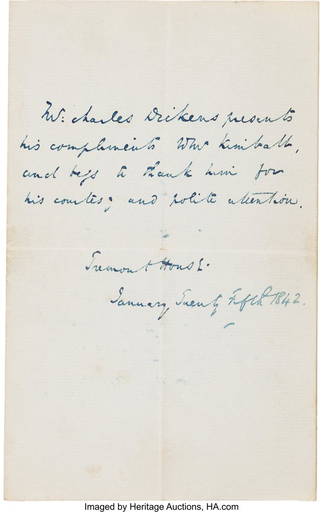 Mr. Charles Dickens presents
his compliments to Mr Kimball,
and begs to thank him for
his courtesy and polite attention.
Tremont House.
January Twenty Fifth 1842.
Imaged by Heritage Auctions, HA.com